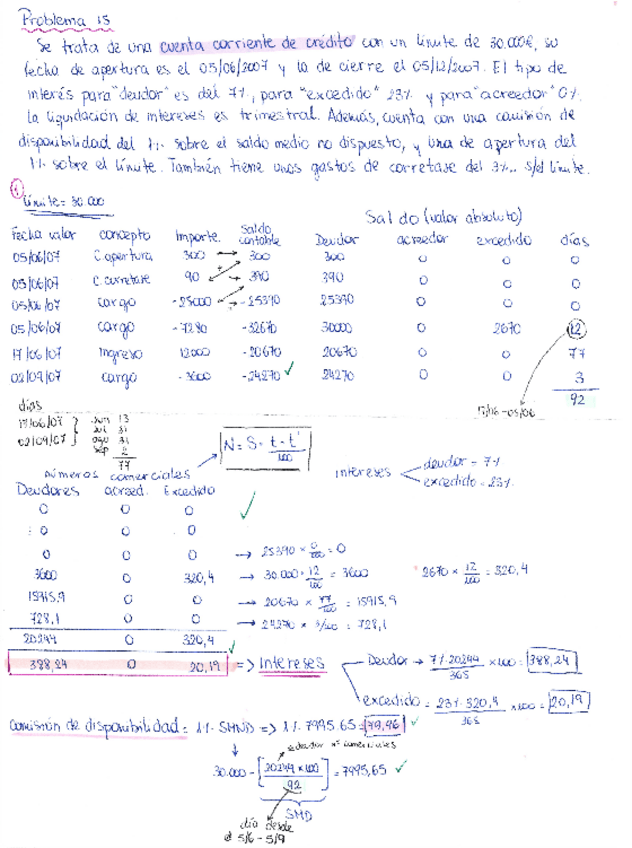 Problema 15
Se trata de una cuenta corriente de crédito con un límite de 30.000€, su
fecha de apertura es el 05/06/2007 y la de cierre el 05/12/2007. El tipo de
interés para "deudor" es del 7%, para "excedido" 23% y para "acreedor" 0%.
La liquidación de intereses es trimestral. Además, cuenta con una comisión de
disponibilidad del 1% sobre el saldo medio no dispuesto, y una de apertura del
1% sobre el límite. También tiene unos gastos de corretaje del 3%.. s/el límite.
Límite = 30.000
Saldo (valor absoluto)
Fecha valor concepto Importe. Saldo contable Deudor acreedor excedido días
05/06/07 C. apertura 300 300 300 0 0 0
05/06/07 C. corretaje 90 390 390 0 0 0
05/06/07 cargo -25000 -25390 25390 0 0 0
05/06/07 cargo -7280 -32670 30000 0 2670 12
17/06/07 Ingreso 12000 -20670 20670 0 0 77
02/09/07 cargo -3600 -24270 24270 0 0 3
92
17/06-05/06
días
17/06/07 jun 13
jul 31
02/09/07 ago 31
sep 2
77
N = S · t - t' / 100
Números comerciales
Intereses deudor = 7%
excedido = 23%
Deudores acreed. Excedido
0 0 0
0 0 0
0 0 0 → 25390 × 0/100 = 0
3600 0 320,4 → 30.000 · 12/100 = 3600 2670 × 12/100 = 320,4
15915,9 0 0 → 20670 × 77/100 = 15915,9
728,1 0 0 → 24270 × 3/100 = 728,1
20244 0 320,4
388,24 0 20,19 => Intereses
Deudor → 7%.20244/365 ×100 = 388,24
excedido = 23%.320,4/365 ×100 = 20,19
Comisión de disponibilidad = 1%. SMND => 1%. 7995.65 = 79,96
deudor nº comerciales
30.000 - [20244×100/92] = 7995,65
SMD
día desde
el 5/6 - 5/9